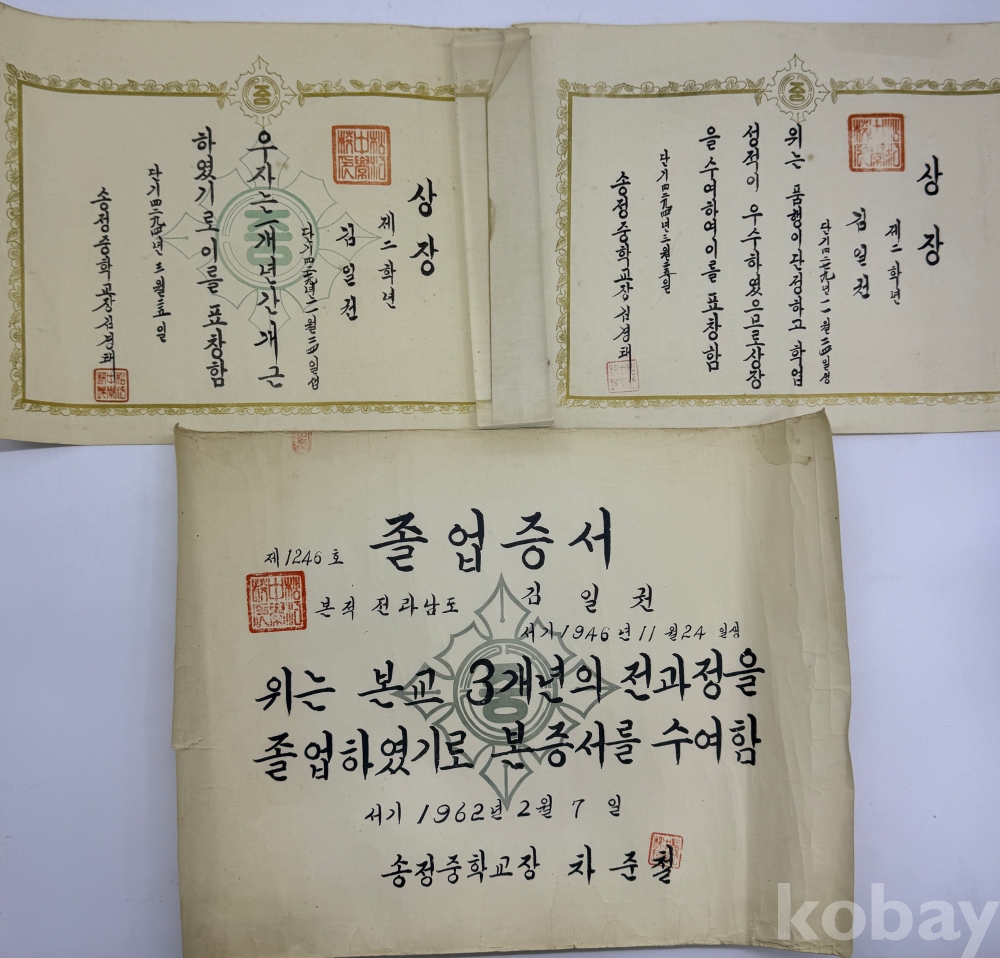 상장
제二학년
김일권
단기四二七九年十一월二四일생
우자는一개년간개근
하였기로이를표창함
단기四二九四년三월三五일
송정중학교장심경태
중
상장
제二학년
김일권
위는품행이단정하고학업
성적이우수하였으므로상장
을수여하여이를표창함
송정중학교장심경태
중
졸업증서
제1246호
본적 전라남도
김 일 권
서기 1946년 11월 24 일생
위는 본교 3개년의 전과정을
졸업하였기로 본증서를 수여함
서기 1962년 2월 7 일
송정중학교장 차준철
중
kobay